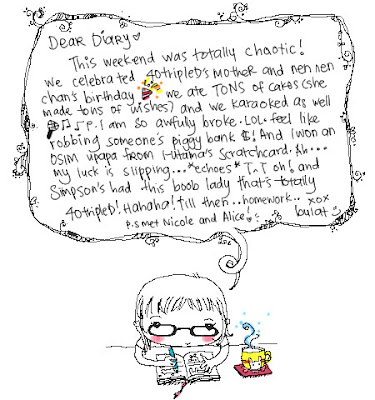 Dear Diary
This weekend was totally chaotic!
We celebrated 40tripleD's Mother and neh neh
chan's birthday we ate TONS of cakes (she
made tons of wishes) and we karaoked as well
I am so awfully broke. LOL. feel like
robbing someone's piggy bank ! And I won an
OSIM upapa from 1-Utama's scratchcard. Ah...
my luck is slipping... *echoes* T.T oh! and
Simpson's had this boob lady that's totally
40tripleD! Hahaha! till then.. homework.. xox
P.S met Nicole and Alice!